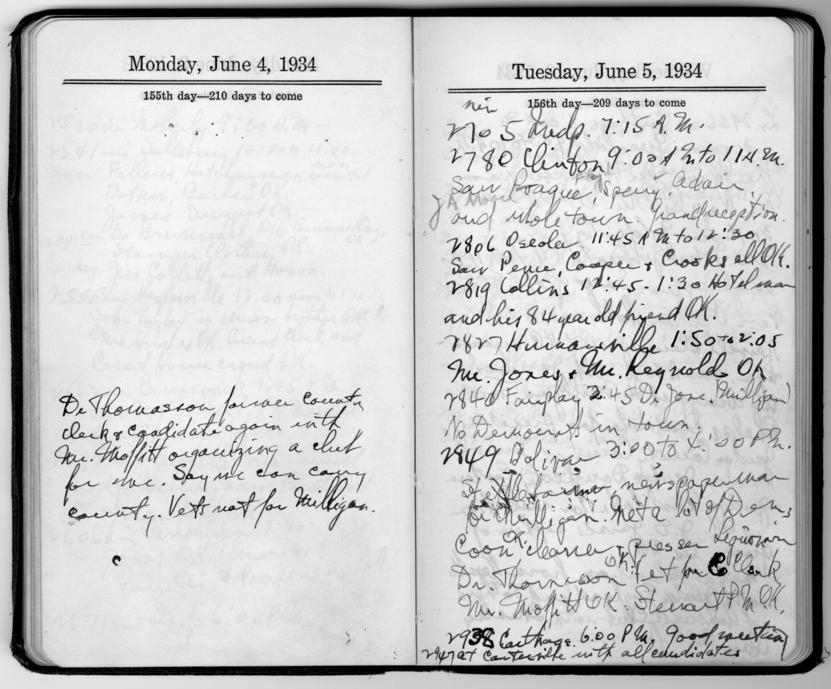 Monday, June 4, 1934
155th day—210 days to come
Dr Thomasson former county
clerk & candidate again with
Mr. Moffitt organizing a club
for me. Say we can carry
county. Vets not for Milligan.
Tuesday, June 5, 1934
156th day—209 days to come
2705 Indp. 7:15 A.M.
2780 Clinton 9:00 A M to 11 A M.
Saw Poague, Spery Adair,
and whole town. grand reception.
2806 Osceola 11:45 A M to 12:30
Saw Pence, Cooper & Crooks all OK.
2819 Collins 12:45 - 1:30 Hotel man
and his 84 year old friend OK.
2827 Humansville 1:50 to 2:05
Mr. Jones & Mr. Reynolds OK
2840 Fairplay 2:45 D. Jone. Milligan
No Democrats in town.
2849 Bolivar 3:00 to 4:00 P.M.
newspaper man
for Milligan. Met a lot of Dems
Coon OK cleaner & presser Legionair
Dr. Thomasson OK. Vet for C Clerk
Mr. Moffitt OK. Stewart P M OK.
2938 Carthage 6:00 P M, Good meeting
2947 at Carterville with all candidates